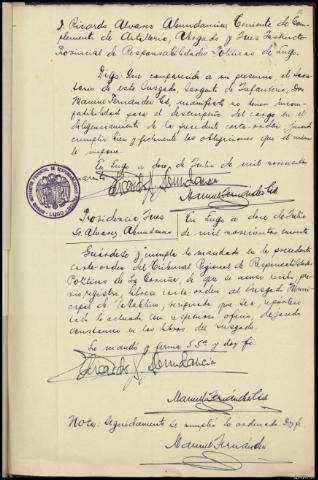 D. Ricardo Alvarez Abundancia, Teniente de Com-
plemento de Artillería, Abogado y Juez Instructor
Provincial de Responsabilidades Políticas de Lugo.
Digo: Que comparece a mi presencia el Secre-
tario de este Juzgado, Sargento de Infantería, Don
Manuel Fernández Gil, manifiesta no tener incom-
patibilidad para el desempeño del cargo en el
diligenciamiento de la precedente carta-orden, jurando
cumplir bien y fielmente las obligaciones que el mismo
le impone.
En Lugo a doce de Julio de mil novecientos
cuarenta
Manuel Fernández
Providencia Juez
Sr. Alvarez Abundancia
En Lugo a doce de Julio
de mil novecientos cuarenta
Guárdese y cumpla lo mandado en la precedente
carta-orden del Tribunal Regional de Responsabilidades
Políticas de La Coruña, de que se acusará recibo,
y registro, carta-orden al Juzgado Muni-
cipal de
lo actuado con oficio, dejando
constancia en los libros del Juzgado.
Lo mandó y firma S.Sª. Doy fé.
Manuel Fernández
Nota: Seguidamente se cumplió lo ordenado. Doy fé.
Manuel Fernández